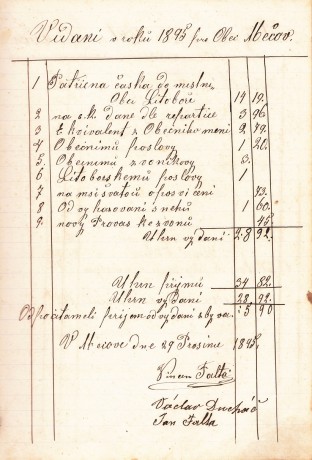 Vidani v roků 1895 pro Obec Mečov.
1 Patřična častka do mistni
Obci Litoboře 14 19.
2 na s.k. dane dle repartice 3 96
3 Ekvivalent z Obecniho meni 2 79.
4 Obecnimu poslovy 1 20.
5. Obecnemu zvonikovy 3.
6 Litoborskemu poslovy 1
7 na mši svatou a posvicáni 83.
8 Od vyhazovani snehů 1 60.
9. nový Provas ke zvonů 45.
Uhrn vydani 28 92.
Uhrn přijmů 34 82.
Uhrn vydani 28. 92.
Odpočitameli přijem od vydani zbyva 5 90
V Mečove dne 29 Prosince 1895.
Vincen Falta
Václav Duchač
Jan Falta